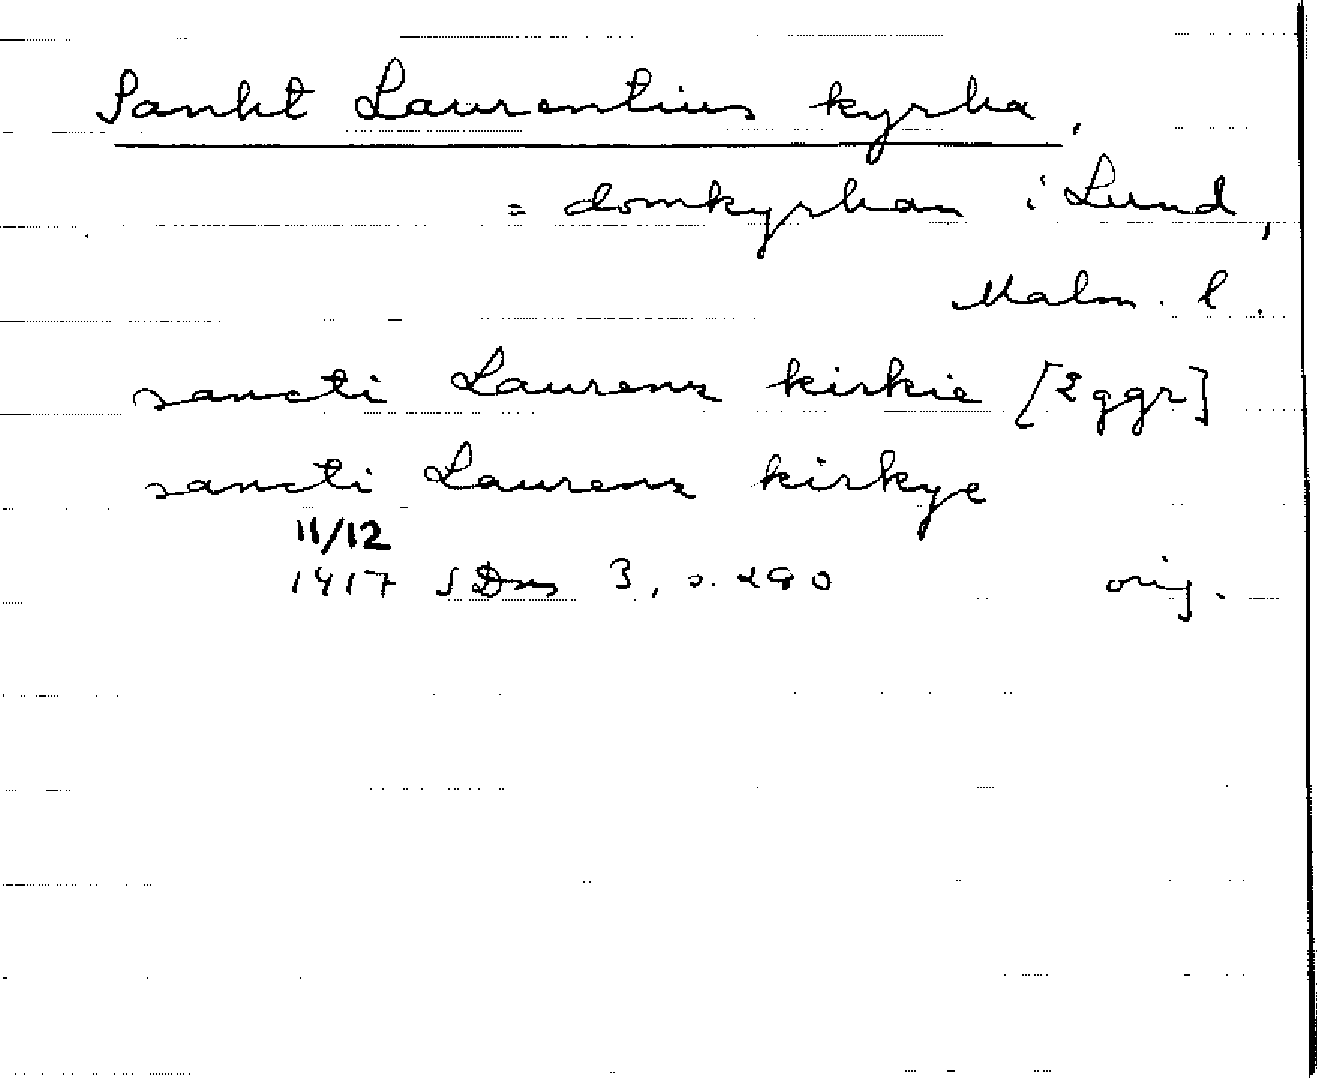 Sankt Laurentius kyrka,
= domkyrkan i Lund,
Malm. l.
sancti Laurenz kirkie [2 ggr]
sancti Laurenz kirkye
11/12
1417 SDns 3, s. 290 orig.